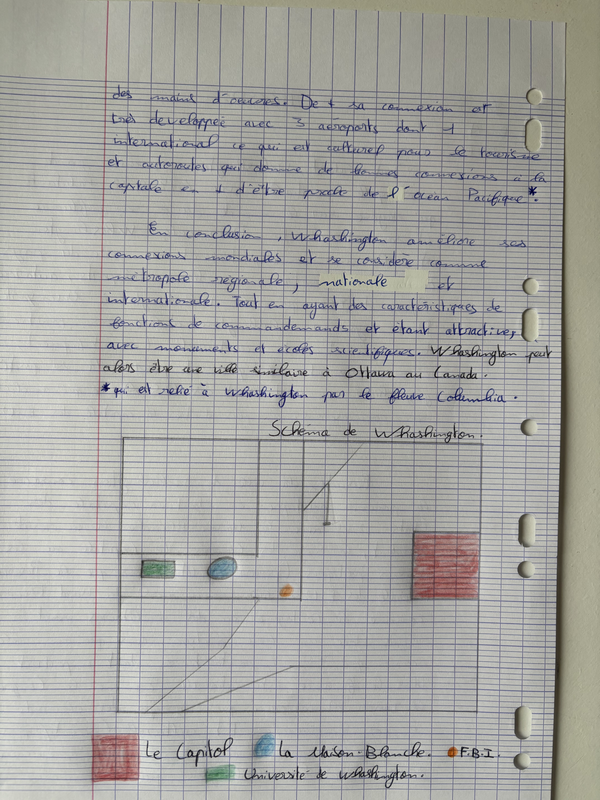 des mains d'oeuvres. De + sa connexion est
très developpée avec 3 aéroports dont 1
international ce qui est culturel pour le tourisme
et autoroutes qui donne de bonnes connexions à la
capitale en + d'être proche de l'océan Pacifique*.
En conclusion, Whashington améliore ses
connexions mondiales et se considère comme
métropole régionale, nationale et
internationale. Tout en ayant des caractéristiques de
fonctions de commandemands et étant attractive,
avec monuments et écoles scientifiques. Whashington peut
alors être une ville similaire à Ottawa au Canada.
*qui est relié à Whashington par le fleuve Columbia.
Schéma de Whashington.
Le Capitol La Maison-Blanche. F.B.I.
Université de Whashington.